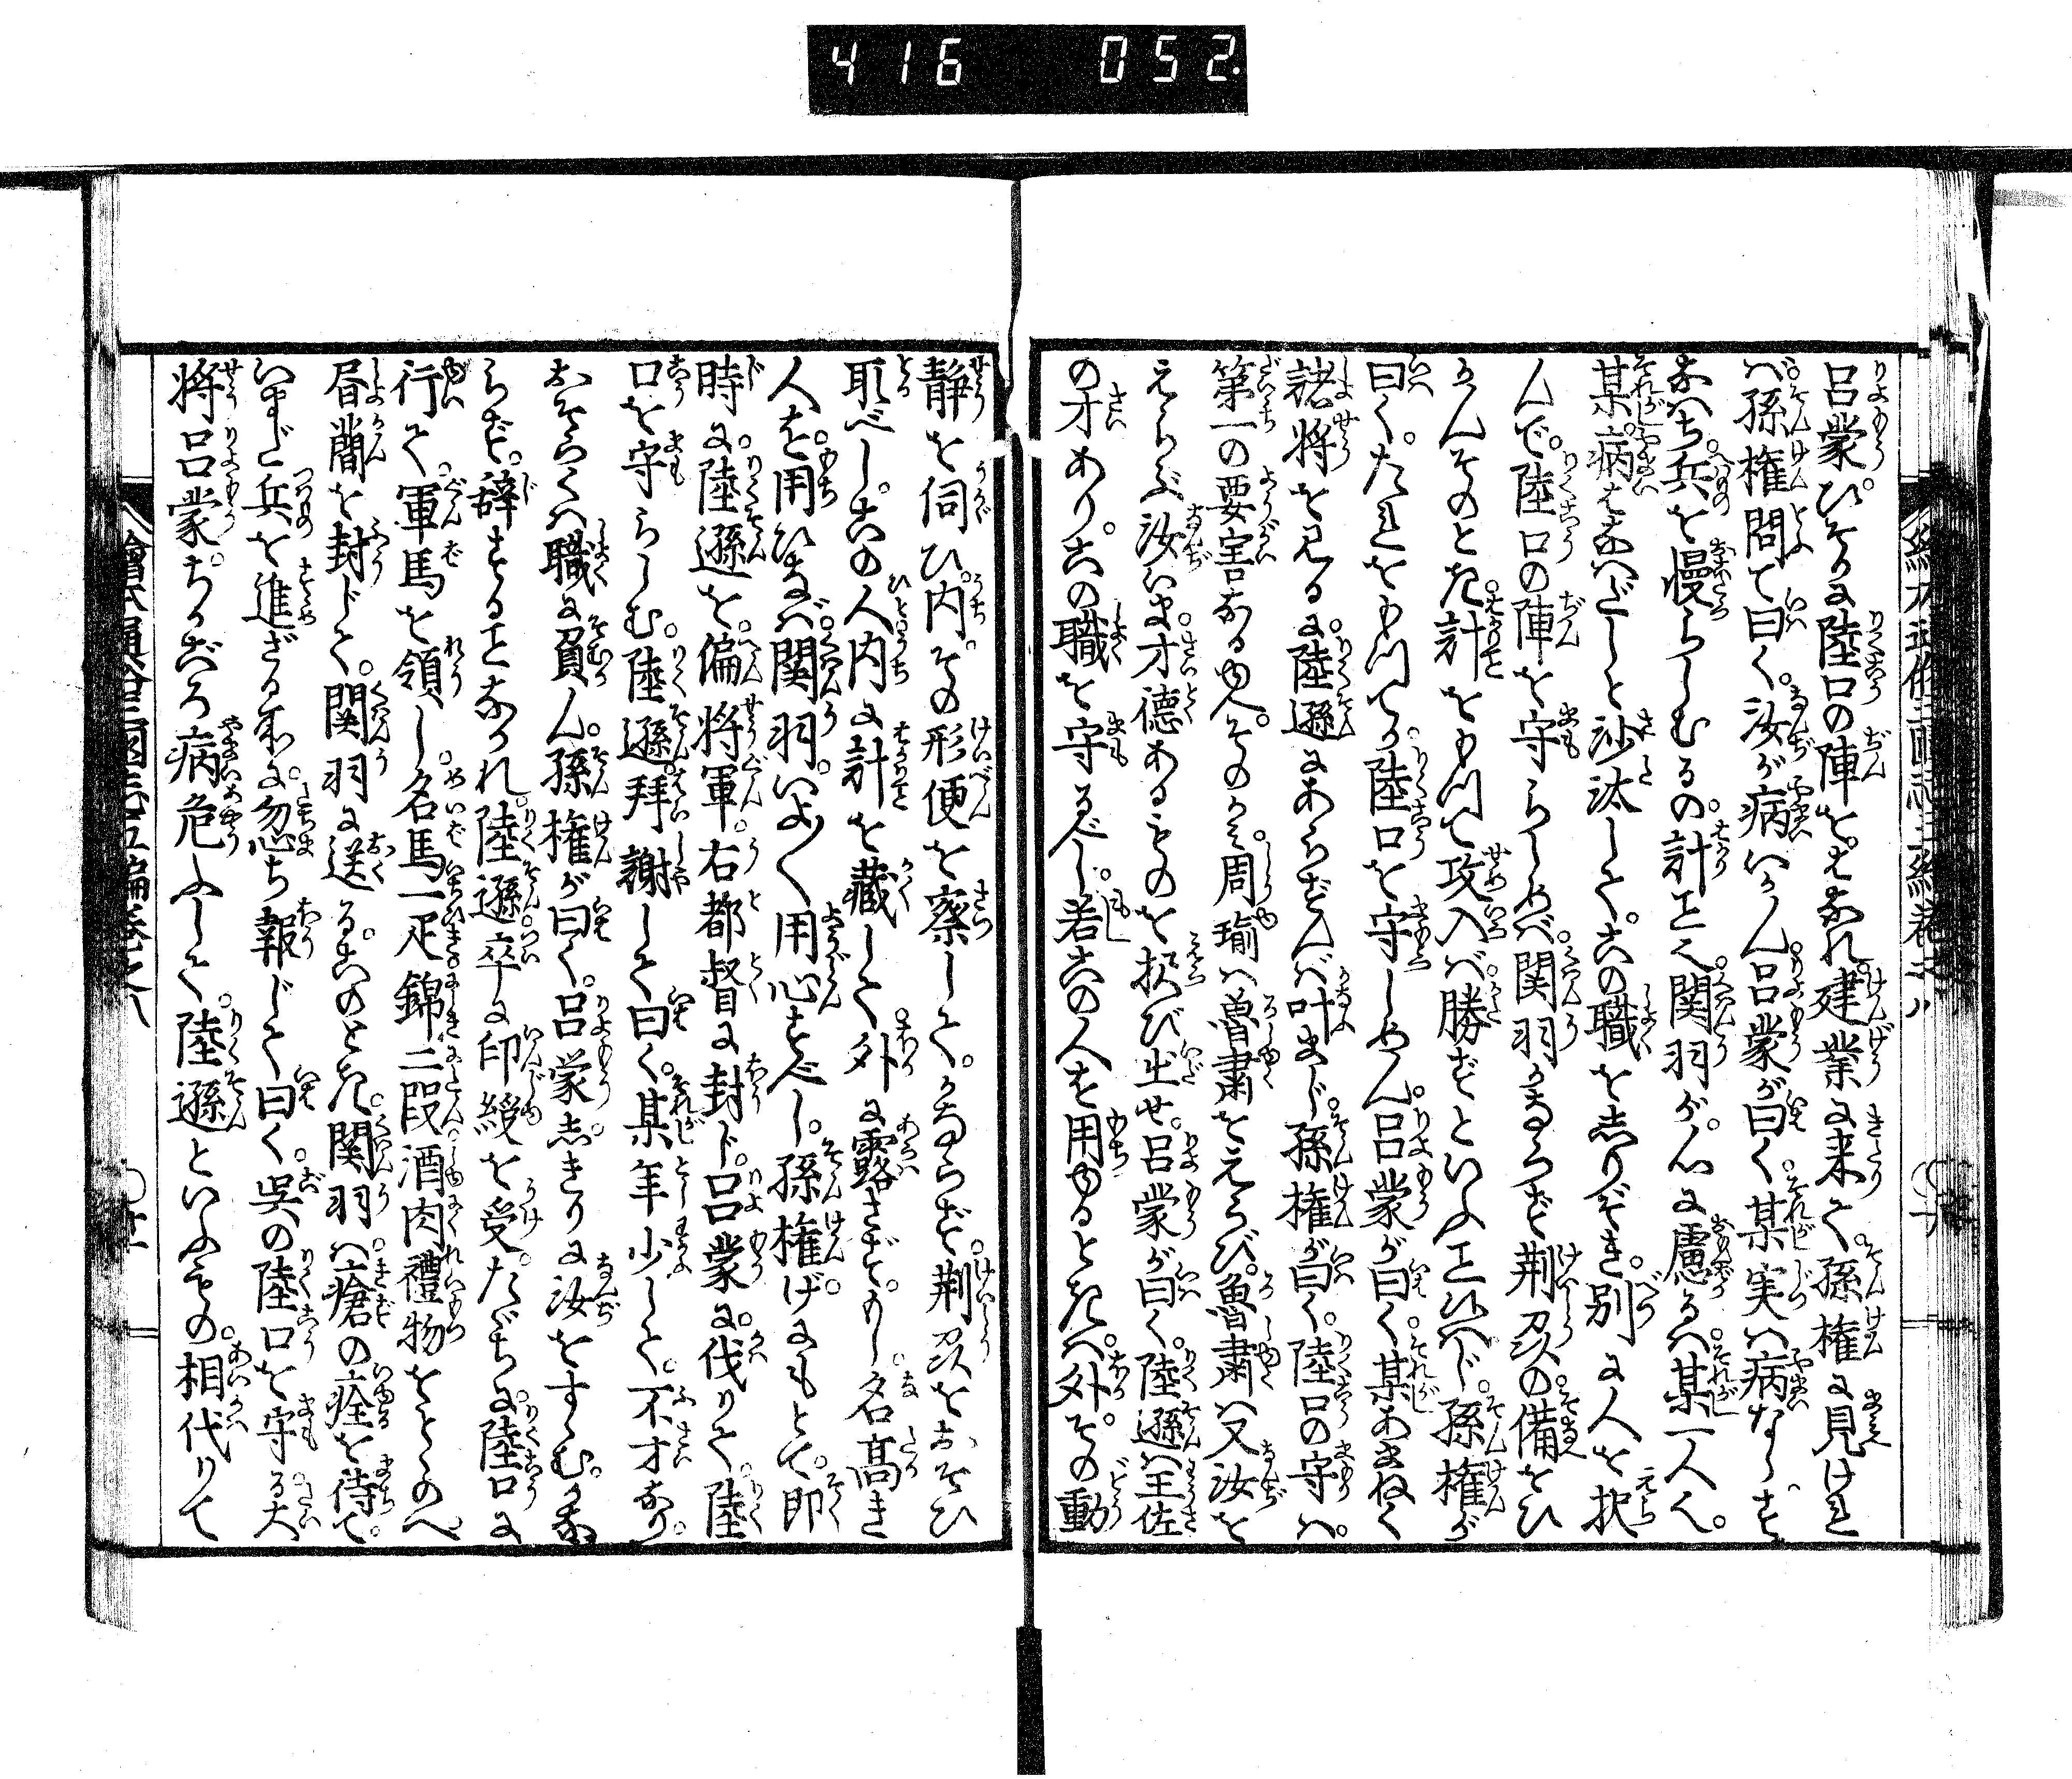 416 052.
呂蒙ひそかに陸口の陣をはなれ。建業に来て。孫権に見けれ
ば。孫権問て曰く。汝が病いかん。呂蒙が曰く。某実は病ならず
たゞち兵を慢らしむるの計こと。関羽が心に慮るは某一人也。
某病はなはだしと沙汰して。此の職をしりぞき。別に人を択
んで。陸口の陣を守らしめば。関羽かならず荆州の備をひ
かんそのとき。計をもつて攻入ば。勝ずといふこと候べじ。孫権が
曰く。たれをもつてか陸口を守しめん。呂蒙が曰く。某あまねく
諸将を見るに。陸遜にあらずんば叶まじ。孫権が曰く。陸口の守は。
第一の要害なるゆへ。そのかみ。周瑜は魯粛をえらび。魯粛は又汝を
えらぶ汝いま。才徳あるものを択び出せ。呂蒙が曰く。陸遜は王佐
の才あり。此の職を守るべし。若此の人を用ゆるときは。外。その動
静を伺ひ。内。その形便を察して。かならず。荆州をおそひ
取べし。此の人内に計を蔵して。外に露さず。もし。名高き
人を用ひなば。関羽。いよ〱用心すべし。孫権。げにもとて。即
時に。陸遜を。偏将軍。右都督に封ド。呂蒙に。代りて。陸
口を守らしむ。陸遜。拝謝して曰く。某年少して。不才なり。
おそらくは職に負ん。孫権が曰く。呂蒙しきりに汝をすゝむ。かな
らず。辞することなかれ。陸遜。卒に印綬を受。たゞちに。陸口に
行て。軍馬を領し。名馬一疋。錦二段。酒肉禮物をとゝのへ。
書簡を封じて。関羽に送る。此のとき。関羽は。瘡の痊を待て。
いまだ兵を進ざる所に。忽ち報じて曰く。呉の陸口を守る大
将呂蒙。ちかごろ病危ふして。陸遜といふもの。相代りて